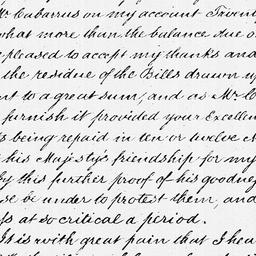 Mr Cabarrus on my account Twent
what more than the balance due o
pleased to accept my thanks and
the residue of the Bills drawn up
nt to a great sum, and as Mr C
furnish it provided your Excellen
s being repaid in ten or twelve M
his Majesty's friendship for my
by this further proof of his goodne
se be under to protest them, and
ss at so critical a period.
It is with great pain that I hea